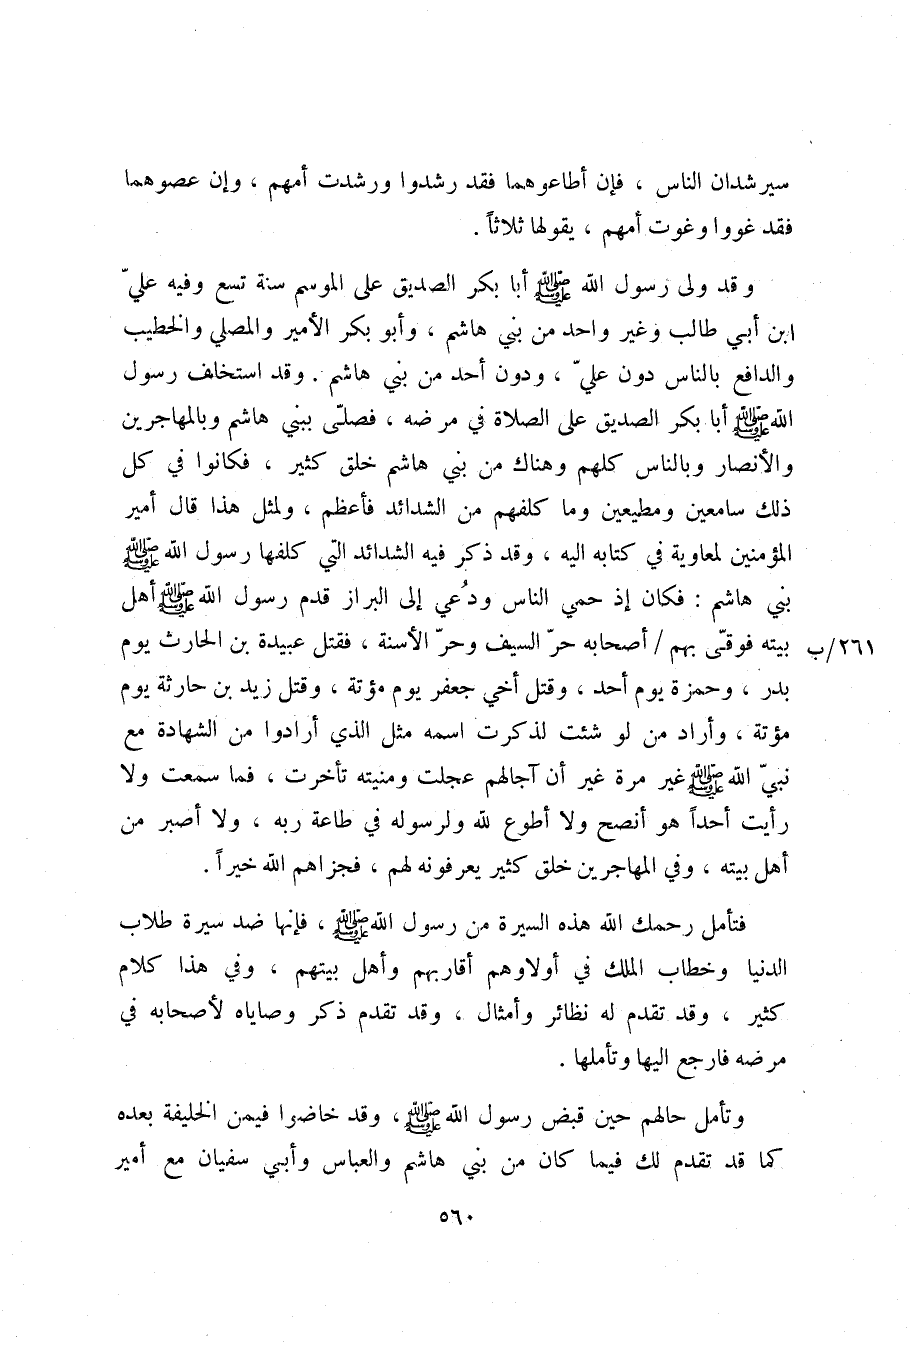 سيرشدان الناس ، فإن أطاعوهما فقد رشدوا ورشدت أمهم ، وإن عصوهما
فقد غووا وغوت أمهم ، يقولها ثلاثاً .
وقد ولى رسول الله ﷺ أبا بكر الصديق على الموسم سنة تسع وفيه عليّ
ابن أبي طالب وغير واحد من بني هاشم ، وأبو بكر الأمير والمصلي والخطيب
والدافع بالناس دون عليّ ، ودون أحد من بني هاشم . وقد استخلف رسول
الله ﷺ أبا بكر الصديق على الصلاة في مرضه ، فصلّى ببني هاشم وبالمهاجرين
والأنصار وبالناس كلهم وهناك من بني هاشم خلق كثير ، فكانوا في كل
ذلك سامعين ومطيعين وما كلفهم من الشدائد فأعظم ، ولمثل هذا قال أمير
المؤمنين لمعاوية في كتابه اليه ، وقد ذكر فيه الشدائد التي كلفها رسول الله ﷺ
بني هاشم : فكان إذ حمي الناس ودُعي إلى البراز قدم رسول الله ﷺ أهل
بيته فوقّى بهم / أصحابه حرّ السيف وحرّ الأسنة ، فقتل عبيدة بن الحارث يوم
٢٦١/ب
بدر ، وحمزة يوم أحد ، وقتل أخي جعفر يوم مؤتة ، وقتل زيد بن حارثة يوم
مؤتة ، وأراد من لو شئت لذكرت اسمه مثل الذي أرادوا من الشهادة مع
نبيّ الله ﷺ غير مرة غير أن آجالهم عجلت ومنيته تأخرت ، فما سمعت ولا
رأيت أحداً هو أنصح ولا أطوع لله ولرسوله في طاعة ربه ، ولا أصبر من
أهل بيته ، وفي المهاجرين خلق كثير يعرفونه لهم ، فجزاهم الله خيراً .
فتأمل رحمك الله هذه السيرة من رسول الله ﷺ ، فإنها ضد سيرة طلاب
الدنيا وخطاب الملك في أولاوهم أقاربهم وأهل بيتهم ، وفي هذا كلام
كثير ، وقد تقدم له نظائر وأمثال ، وقد تقدم ذكر وصاياه لأصحابه في
مرضه فارجع اليها وتأملها .
وتأمل حالهم حين قبض رسول الله ﷺ ، وقد خاضوا فيمن الخليفة بعده
كما قد تقدم لك فيما كان من بني هاشم والعباس وأبي سفيان مع أمير
٥٦٠